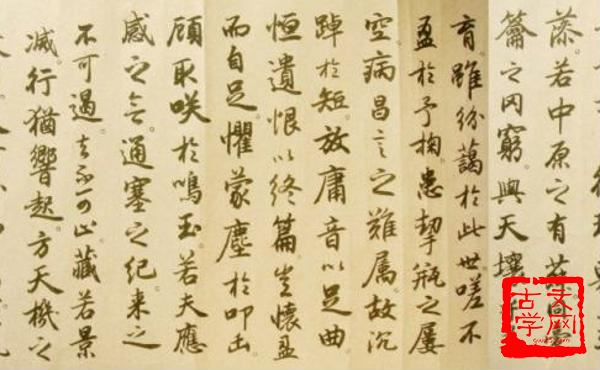 藻若中原之有
籥之罔窮與天壤
育雖紛藹於此世嗟不
盈於予掬患挈瓶之屢
空病昌言之難属故沉
踔於短放庸音以足曲
恒遺恨以終篇豈懷盈
而自足懼蒙塵於叩缶
顧取咲於鳴玉若夫應
感之會通塞之紀来之
不可遏去不可止藏若景
滅行猶響起方天機之
古文学网